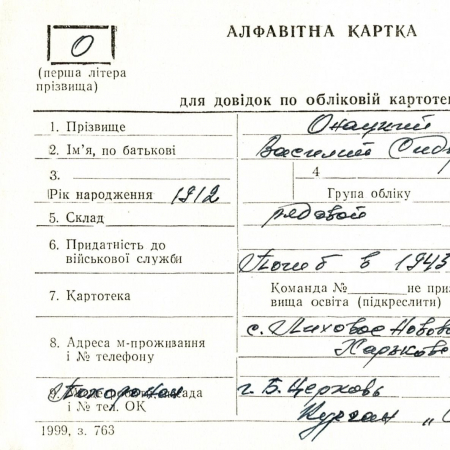 О
(перша літера
прізвища)
АЛФАВІТНА КАРТКА
для довідок по обліковій картоте
1. Прізвище Онацкий
2. Ім'я, по батькові Василий Сид
3. 4
Рік народження 1912 Група обліку
5. Склад рядовой
6. Придатність до
військової служби Погиб в 1943
7. Картотека Команда № не при
вища освіта (підкреслити)
8. Адреса м-проживання
і № телефону с. Лиховое Новов
Харьков
9. Похоронен г. Б. Церковь
і № тел. ОК Курган „
1999, з. 763